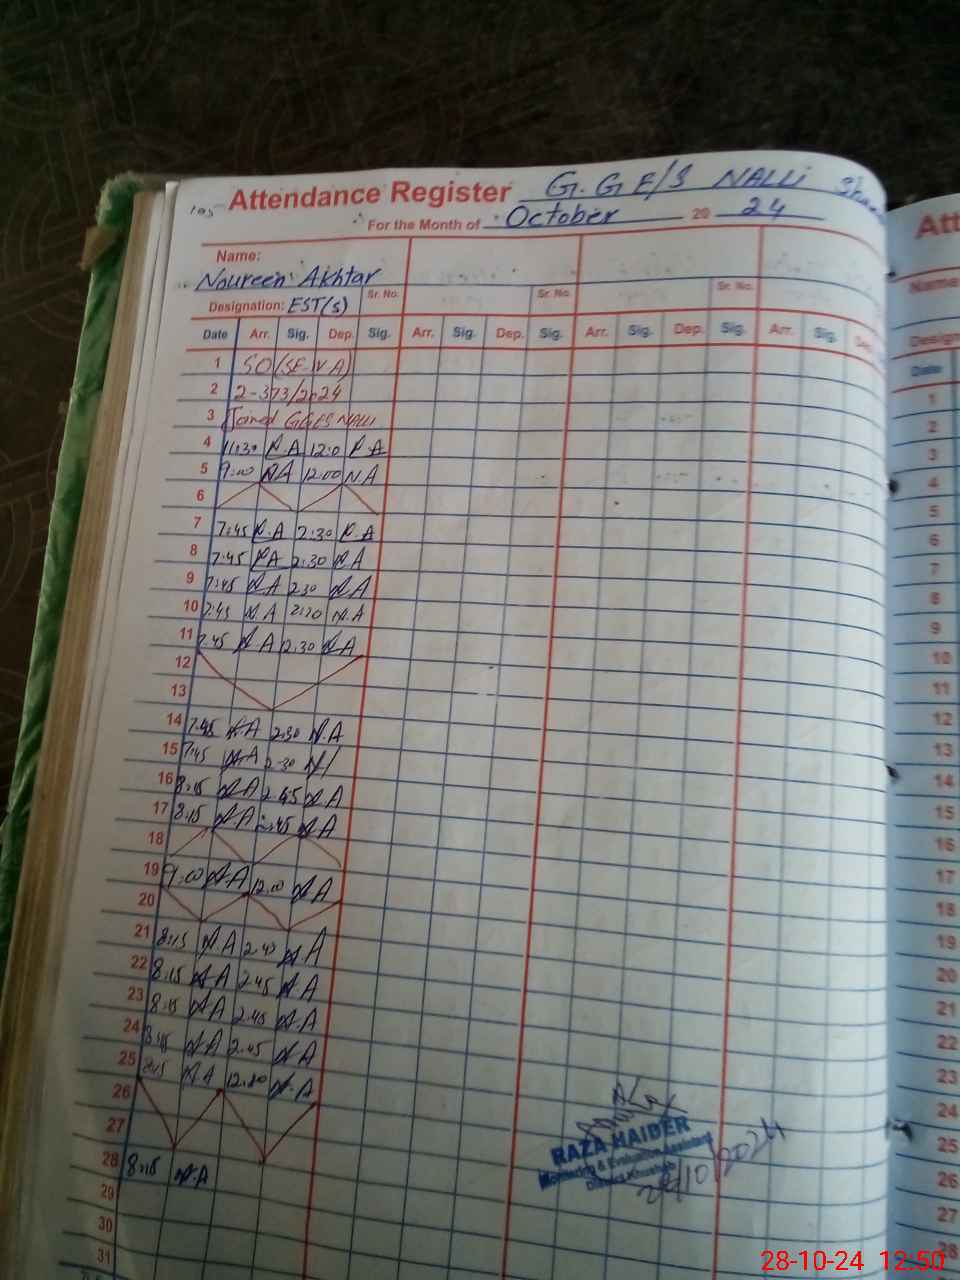 Attendance Register G.G E/S NALLi
For the Month of October 20 24
Name:
Noureen Akhtar
Designation: EST(S) Sr. No. Sr. No. Sr. No.
Date Arr. Sig. Dep. Sig. Arr. Sig. Dep. Sig. Arr. Sig. Dep. Sig. Arr. Sig.
1 SO(SE-IV A)
2 2-373/2024
3 Joined GGES NALLI
4 11:30 N.A 12:0 N.A
5 9:00 NA 12:00 N.A
6
7 7:45 N.A 2:30 N.A
8 7:45 NA 2:30 N.A
9 7:45 NA 2:30 NA
10 7:45 N.A 2:30 N.A
11 7:45 N.A 2:30 NA
12
13
14 7:45 N.A 2:30 N.A
15 7:45 N.A 2:30
16 8:15 NA 2:45 N.A
17 8:15 N.A 2:45 N.A
18
19 9:00 N.A 12:00 N.A
20
21 8:15 N.A N.A
22 8:15 N.A 2:45 N.A
23 8:15 N.A 2:45 N.A
24 N.A 2:45 N.A
25 8:15 N.A N.A
26
27
28 8:15 N.A
29
30
31
RAZA HAIDER
Monitoring & Evaluation Assistant
District Khushab
28/10/2024
Att
Name
Design
Date
1
2
3
4
5
6
7
8
9
10
11
12
13
14
15
16
17
18
19
20
21
22
23
24
25
26
27
28
28-10-24 12:50